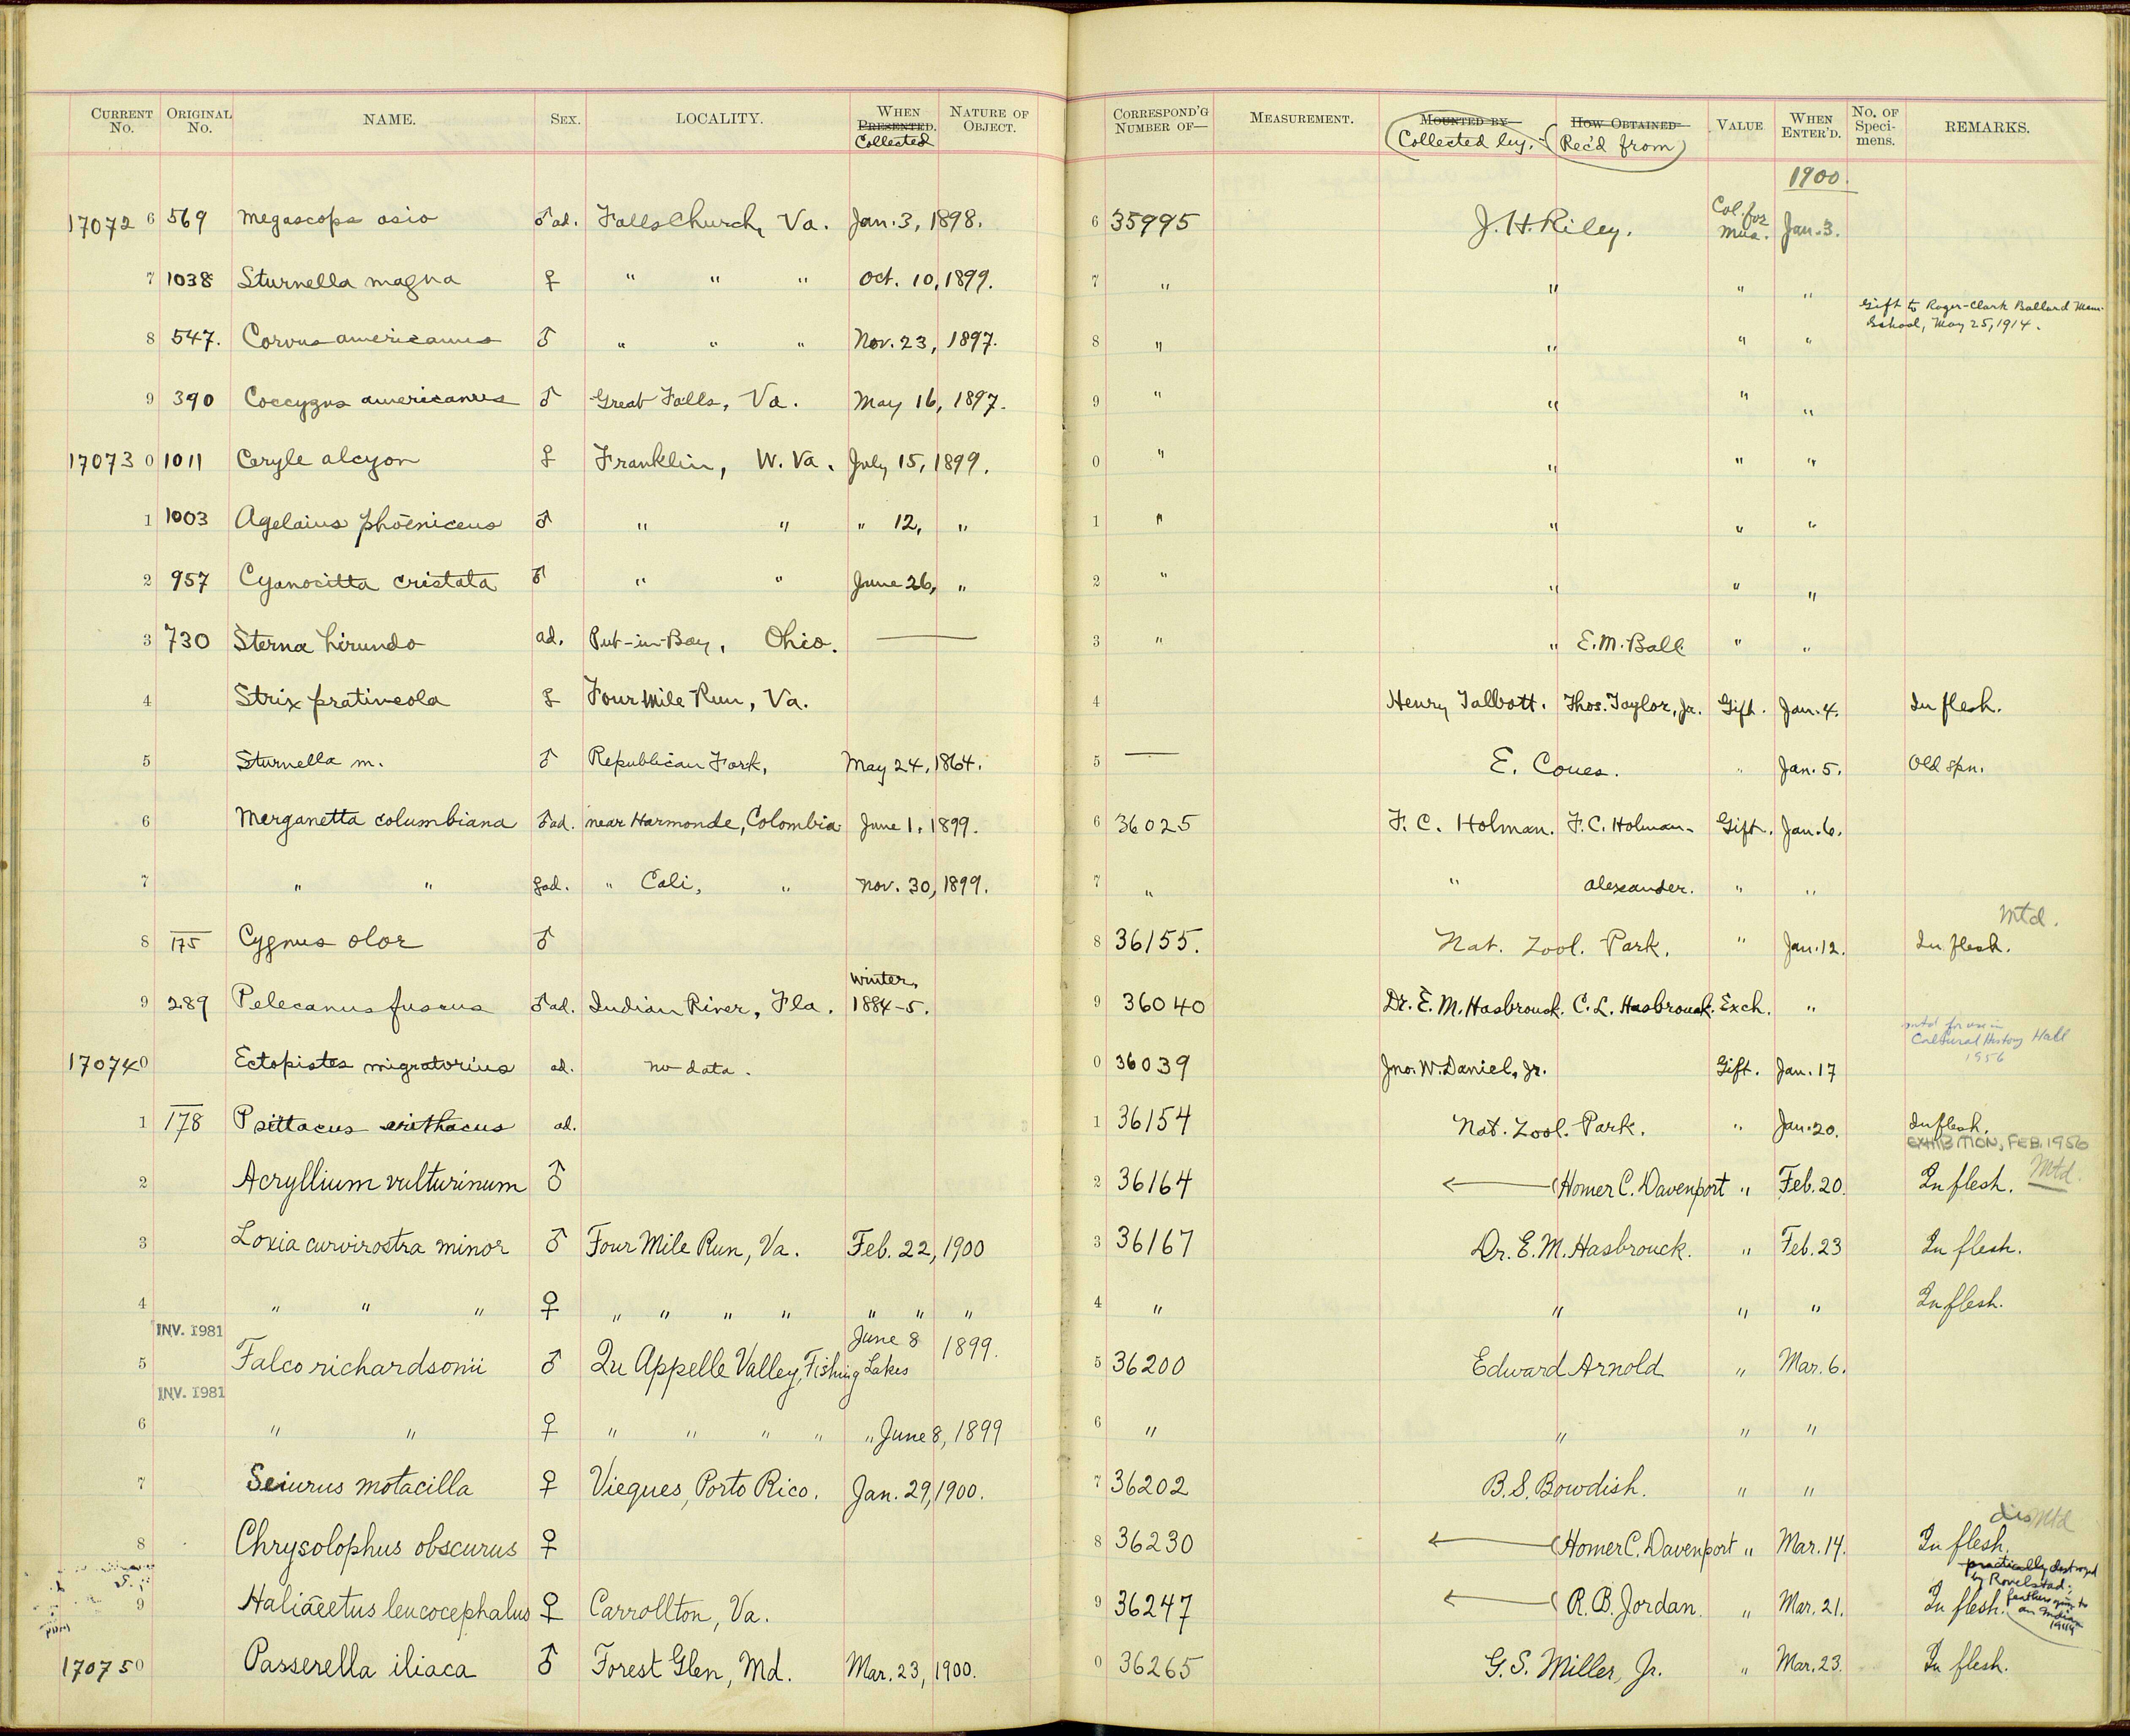 CURRENT No. ORIGINAL No. NAME. SEX. LOCALITY. WHEN PRESENTED. Collected NATURE OF OBJECT. CORRESPOND'G NUMBER OF— MEASUREMENT. MOUNTED BY Collected by. HOW OBTAINED Rec'd from VALUE WHEN ENTER'D. No. OF Speci-mens. REMARKS.
1900.
17072 6 569 Megascops asio ♂ ad. Falls Church, Va. Jan. 3, 1898. 6 35995 J. H. Riley. Col. for Mus. Jan. 3.
7 1038 Sturnella magna ♀ " " " Oct. 10, 1899. 7 " " " "
Gift to Roger-Clark Ballard Mem. School, May 25, 1914.
8 547. Corvus americanus ♂ " " " Nov. 23, 1897. 8 " " " "
9 390 Coccyzus americanus ♂ Great Falls, Va. May 16, 1897. 9 " " " "
17073 0 1011 Ceryle alcyon ♀ Franklin, W. Va. July 15, 1899. 0 " " " "
1 1003 Agelaius phoeniceus ♂ " " " 12, " 1 " " " "
2 957 Cyanocitta cristata ♂ " " June 26, " 2 " " " "
3 730 Sterna hirundo ad. Put-in-Bay, Ohio. — 3 " " E. M. Ball " "
4 Strix pratincola ♀ Four Mile Run, Va. 4 Henry Talbott. Thos. Taylor, Jr. Gift. Jan. 4. In flesh.
5 Sturnella m. ♂ Republican Fork, May 24, 1864. 5 — E. Coues. " Jan. 5. Old spn.
6 Merganetta columbiana ♂ ad. near Harmonde, Colombia June 1, 1899. 6 36025 F. C. Holman. F. C. Holman. Gift. Jan. 6.
7 " " ♀ ad. " Cali, " Nov. 30, 1899. 7 " " Alexander. " "
8 175 Cygnus olor ♂ 8 36155. Nat. Zool. Park. " Jan. 12. In flesh. Mtd.
9 289 Pelecanus fuscus ♂ ad. Indian River, Fla. Winter, 1884-5. 9 36040 Dr. E. M. Hasbrouck. C. L. Hasbrouck. Exch. "
mtd for use in Cultural History Hall 1956
17074 0 Ectopistes migratorius ad. no data. 0 36039 Jno. W. Daniel, Jr. Gift. Jan. 17
1 178 Psittacus erithacus ad. 1 36154 Nat. Zool. Park. " Jan. 20. In flesh.
EXHIBITION, FEB. 1956
2 Acryllium vulturinum ♂ 2 36164 ← (Homer C. Davenport " Feb. 20. In flesh. Mtd.
3 Loxia curvirostra minor ♂ Four Mile Run, Va. Feb. 22, 1900 3 36167 Dr. E. M. Hasbrouck. " Feb. 23 In flesh.
4 " " " ♀ " " " " " " " 4 " " " " In flesh.
INV. 1981
5 Falco richardsonii ♂ Qu Appelle Valley, Fishing Lakes June 8 1899. 5 36200 Edward Arnold " Mar. 6.
INV. 1981
6 " " ♀ " " " " " June 8, 1899 6 " " " "
7 Seiurus motacilla ♀ Vieques, Porto Rico. Jan. 29, 1900. 7 36202 B. S. Bowdish. " "
8 Chrysolophus obscurus ♀ 8 36230 ← (Homer C. Davenport " Mar. 14. In flesh. dis Mtd
9 Haliaëetus leucocephalus ♀ Carrollton, Va. 9 36247 ← (R. B. Jordan. " Mar. 21. In flesh.
practically destroyed by Rovelstad; feathers going to an Indian 1949
17075 0 Passerella iliaca ♂ Forest Glen, Md. Mar. 23, 1900. 0 36265 G. S. Miller, Jr. " Mar. 23. In flesh.